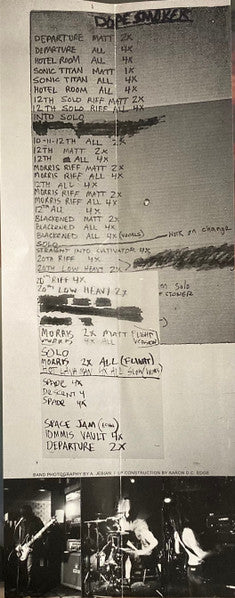 DOPESMOKER
DEPARTURE MATT 2X
DEPARTURE ALL 4X
HOTEL ROOM ALL 4X
SONIC TITAN MATT 1X
SONIC TITAN ALL 4X
HOTEL ROOM ALL 4X
12TH SOLO RIFF MATT 2X
12TH SOLO RIFF ALL 4X
INTO SOLO
10-11-12TH ALL 2X
12TH MATT 2X
12TH ALL 4X
MORRIS RIFF MATT 2X
MORRIS RIFF ALL 4X
12TH ALL 4X
MORRIS RIFF MATT 2X
MORRIS RIFF ALL 4X
12TH ALL 4X
BLACKENED MATT 2X
BLACKENED ALL 4X
BLACKENED ALL 4X (VOCALS)
SOLO on change
STRAIGHT INTO CULTIVATOR 4X
20TH RIFF 4X
20TH LOW HEAVY 2X
20TH RIFF 4X
20TH LOW HEAVY 2X
SOLO
STONER
MORRIS 2X MATT
MORRIS 4X ALL VERSION
SOLO
MORRIS 2X ALL
HOT LAVA MAN ALL
SPADE 4X
DESCENT 4
SPADE 4X
SPACE JAM
IOMMIS VAULT 4X
DEPARTURE 2X
BAND PHOTOGRAPHY BY A. JEBIAN / LP CONSTRUCTION BY AARON D.C. EDGE